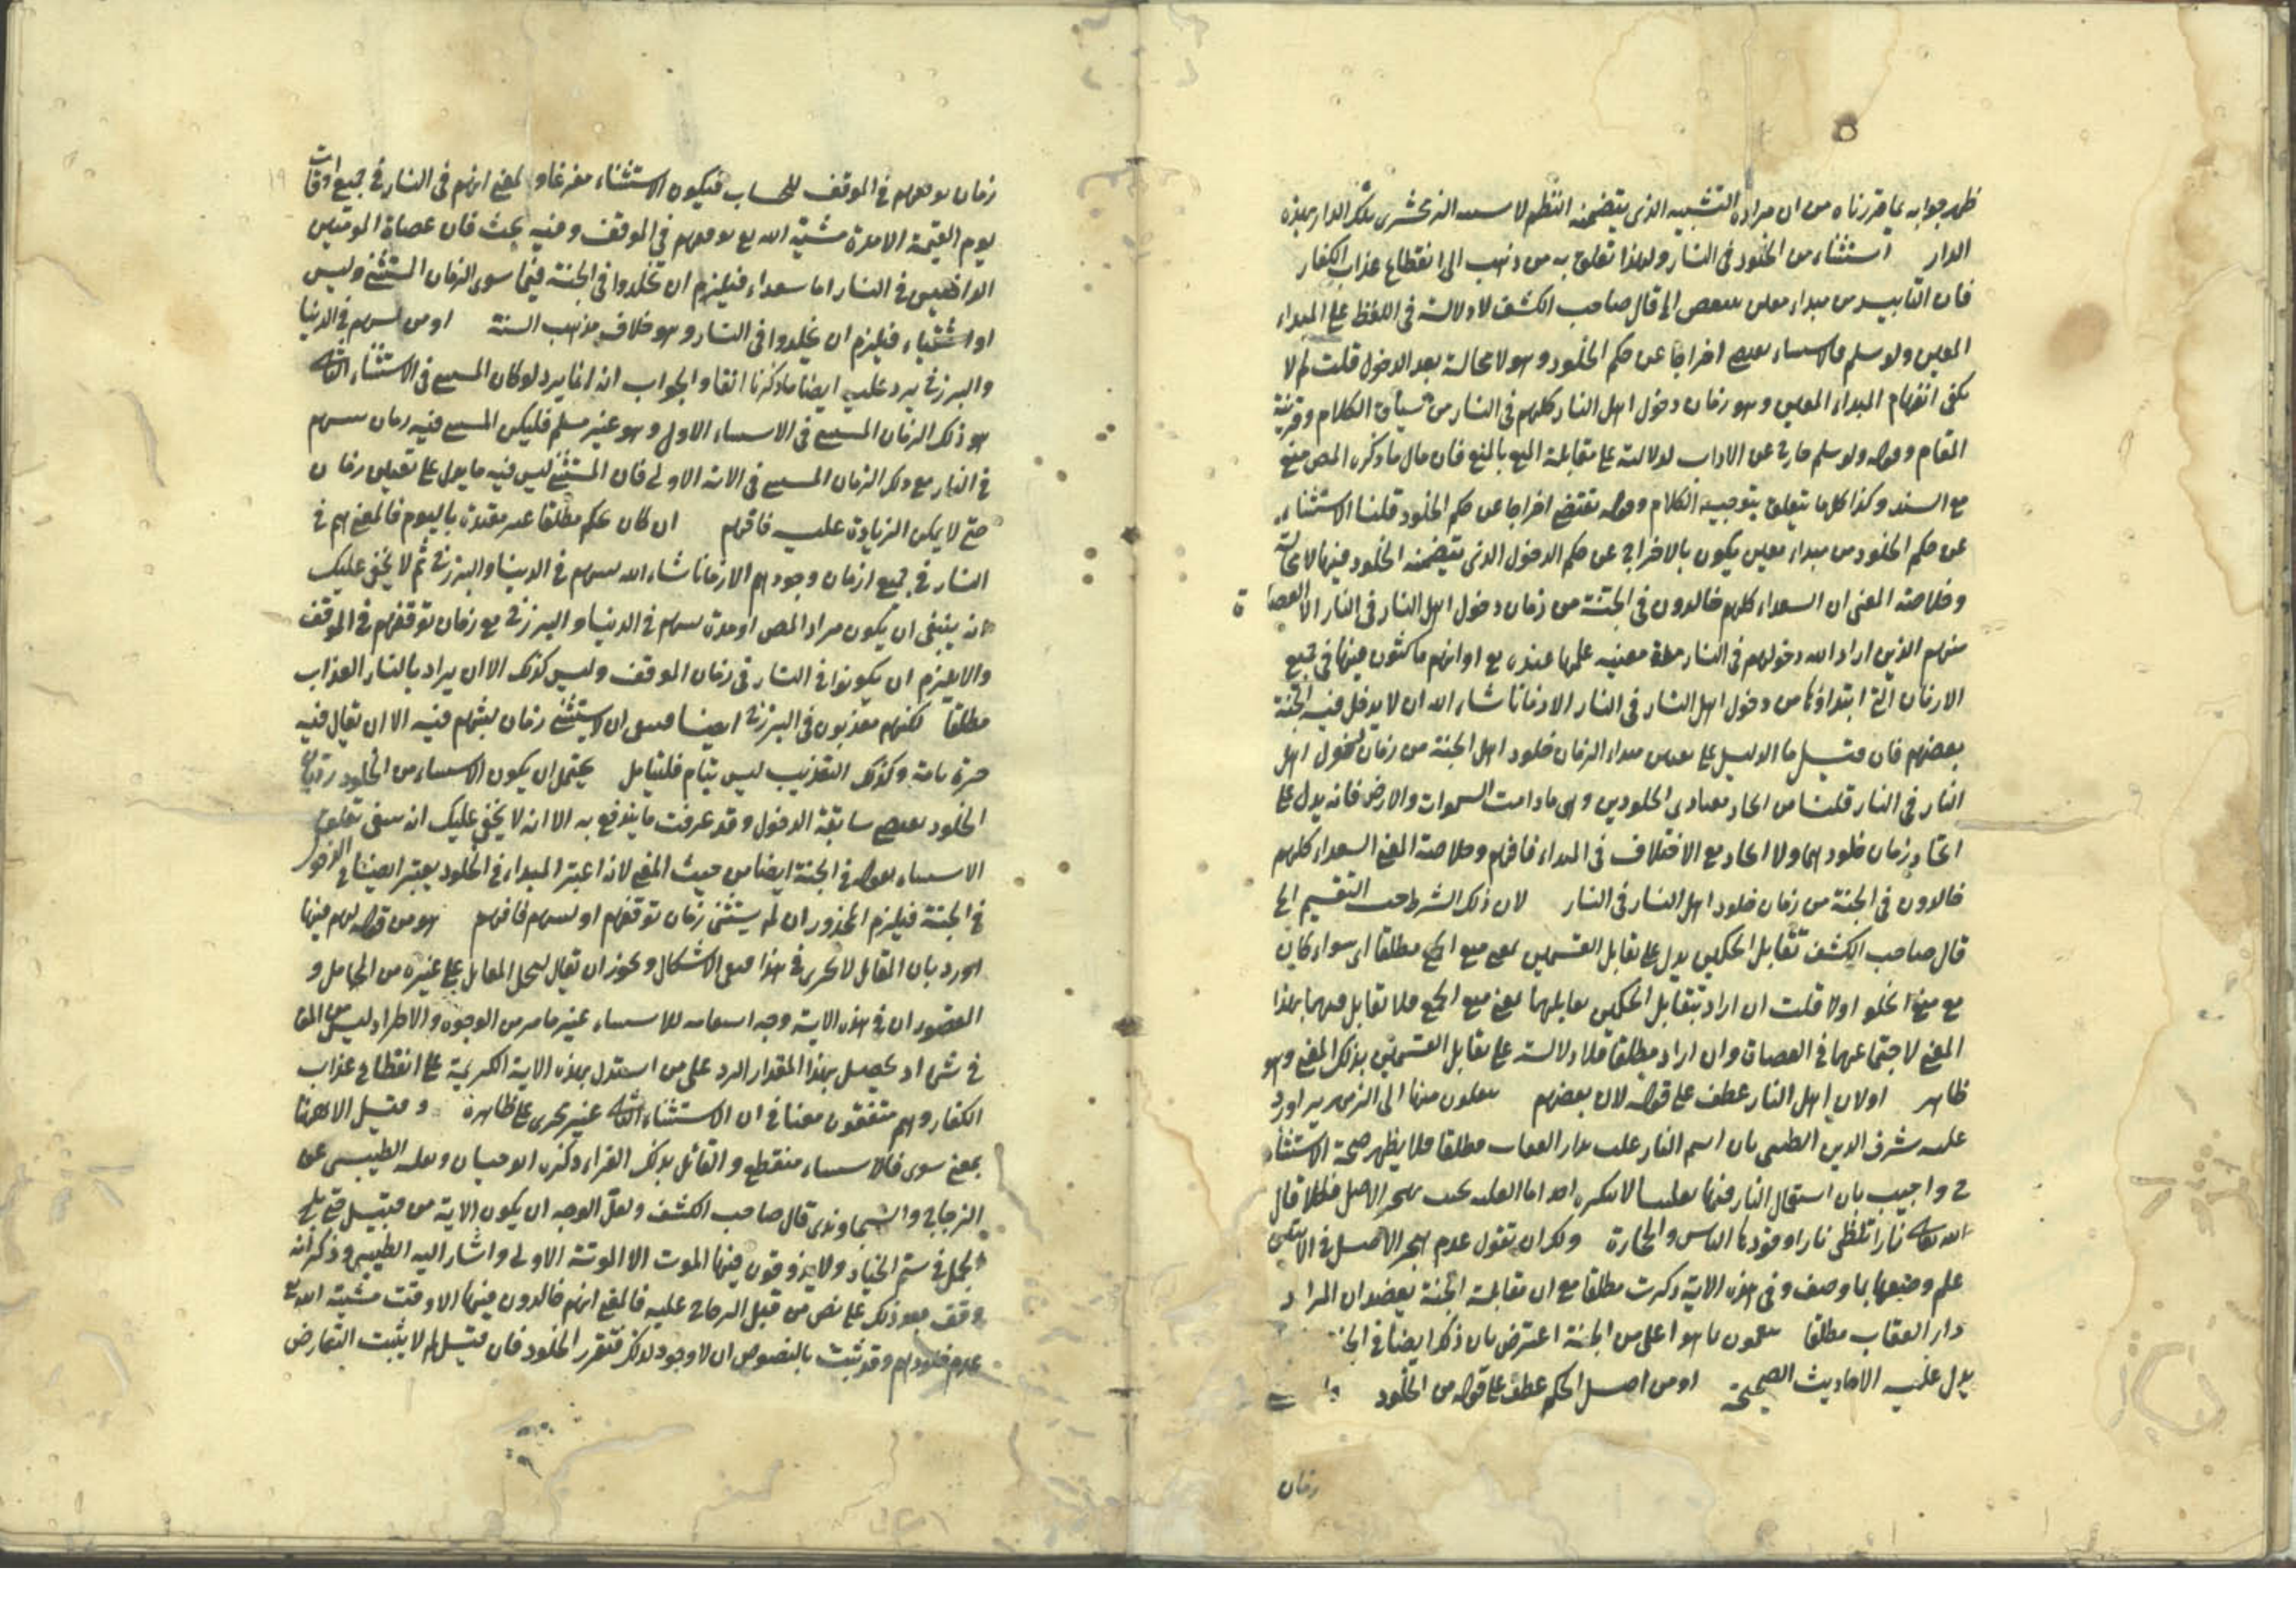 ظهر جوابه بما قررناه من ان مراده التشبيه الذي يتضمنه انتظم لا الزمخشرى تلك الدار بهذه
الدار استثناء من الخلود فى النار ولهذا تعلق به من ذهب الى انقطاع عذاب الكفار
فان التابيد من مبداء معين الى قال صاحب الكشف لا دلالة فى اللفظ على المبداء
المعين ولو سلم فالاستثناء اخراجا عن حكم الخلود وهو لا محالة بعد الدخول قلت لم لا
يكفى انفهام المبداء المعين وهو زمان دخول اهل النار كلهم فى النار من سياق الكلام وقرينة
المقام وقوله ولو سلم خارج عن الاداب لدلالته على مقابلة المنع بالمنع فان مال ما ذكره المص منع
مع السند وكذا كل ما يتعلق بتوجيه الكلام وقوله يقتضى اخراجا عن حكم الخلود قلنا الاستثناء
عن حكم الخلود من مبداء معين يكون بالاخراج عن حكم الدخول الذى يتضمنه الخلود فيها لا محالة
وخلاصة المعنى ان السعداء كلهم خالدون فى الجنة من زمان دخول اهل النار فى النار الا العصاة
منهم الذين اراد الله دخولهم فى النار مدة معينة علمها عنده مع او انهم ماكثون فيها فى جميع
الازمان التى ابتداؤها من دخول اهل النار فى النار الا زمانا شاء الله ان لا يدخل فيه الجنة
بعضهم فان قيل ما الدليل على مبداء الزمان خلود اهل الجنة من زمان دخول اهل
النار فى النار قلنا من اتحاد الخلودين وهى ما دامت السموات والارض فانه يدل على
اتحاد زمان خلودهما ولا اتحاد مع الاختلاف فى المبداء فافهم وخلاصة المعنى السعداء كلهم
خالدون فى الجنة من زمان خلود اهل النار فى النار لان ذلك الشرط حيث التقسيم الخ
قال صاحب الكشف تقابل الحكمين يدل على تقابل القسمين بمعنى منع الجمع مطلقا اى سواء كان
مع منع الخلو اولا قلت ان اراد بتقابل الحكمين تقابلهما بمعنى منع الجمع فلا تقابل فيهما بهذا
المعنى لاجتماعهما فى العصاة وان اراد مطلقا فلا دلالة على تقابل القسمين بذلك المعنى وهو
ظاهر اولان اهل النار عطف على قوله لان بعضهم ينقلون منها الى الزمهرير اورد
عليه شرف الدين الطيبى بان اسم النار غلب لدار العقاب مطلقا فلا يظهر صحة الاستثناء
ح واجيب بان استعمال النار فيها تغليبا لا ينكره احد اما الغلبة بحيث يهجر الاصل فكلا قال
الله تعالى نارا تلظى نارا وقودها الناس والحجارة ولك ان تقول عدم هجر الاصل فى الايتين
علم وضعها بما وصف وفى هذه الاية ذكرت مطلقا مع ان مقابلة الجنة يعضد ان المراد
دار العقاب مطلقا ينعمون بما هو اعلى من الجنة اعترض بان ذكر ايضا فى الجنة
يدل عليه الاحاديث الصحيحة او من اصل الحكم عطف على قوله من الخلود
زمان
زمان توقفهم فى الموقف للحساب فيكون الاستثناء مفرغا والمعنى انهم فى النار فى جميع اوقات
يوم القيمة الا مدة مشية الله مع توقفهم فى الموقف وفيه بحث فان عصاة المومنين
الداخلين فى النار اما سعداء فيلزم ان يخلدوا فى الجنة فيما سوى الزمان المستثنى وليس
او اشقياء فيلزم ان يخلدوا فى النار وهو خلاف مذهب السنة او من لبثهم فى الدنيا
والبرزخ يرد عليه ايضا ما ذكرنا انفا والجواب انه انما يرد لو كان المستثنى فى الاستثناء الثانى
هو ذلك الزمان المستثنى فى الاستثناء الاول وهو غير مسلم فليكن المستثنى فيه زمان لبثهم
فى النار مع ذلك الزمان المستثنى فى الاية الاولى فان المستثنى ليس فيه ما يدل على تعيين زمان
حتى لا يمكن الزيادة عليه فافهم ان كان حكم مطلقا غير مقيدة باليوم فالمعنى هم فى
النار فى جميع ازمان وجودهم الا زمانا شاء الله لبثهم فى الدنيا والبرزخ ثم لا يخفى عليك
انه ينبغى ان يكون مراد المص او مدة لبثهم فى الدنيا والبرزخ مع زمان توقفهم فى الموقف
والا يلزم ان يكونوا فى النار فى زمان الموقف وليس كذلك الا ان يراد بالنار العذاب
مطلقا لكنهم معذبون فى البرزخ ايضا فينبغى ان لا يستثنى زمان لبثهم فيه الا ان يقال فيه
مرة تامة وكذلك التقريب ليس بتام فليتامل يحتمل ان يكون الاستثناء من الخلود
الخلود يقتضى سابقة الدخول وقد عرفت ما يندفع به الا انه لا يخفى عليك انه ينبغى تعلق
الاستثناء بقوله فى الجنة ايضا من حيث المعنى لانه اعتبر المبداء فى الخلود يعتبر ايضا فى الدخول
فى الجنة فيلزم المحذور ان لم يستثنى زمان توقفهم او لبثهم فافهم هو من قوله لهم فيها
اورد بان المقابل لا يجرى فى هذا فيبقى الاشكال ويجوز ان يقال يحمل المقابل على غيره من المحامل و
المقصود ان فى هذه الاية وجه للاستثناء غير ما مر من الوجوه والاطراد ليس من المقا
فى شئ اذ يحصل بهذا المقدار الرد على من استدل بهذه الاية الكريمة على انقطاع عذاب
الكفار وهم متفقون معنا فى ان الاستثناء الثانى غير مجرى على ظاهره وقيل الا ههنا
بمعنى سوى فالاستثناء منقطع والقائل بذلك الفراء ذكره ابو حيان ونقله الطيبى عن
الزجاج والسجاوندى قال صاحب الكشف ولعل الوجه ان يكون الاية من قبيل حتى يلج
الجمل فى سم الخياط ولا يذوقون فيها الموت الا الموتة الاولى واشار اليه الطيبى وذكر انه
وقف بعد ذلك على نص من قبل الزجاج عليه فالمعنى انهم خالدون فيها الا وقت مشية الله تع
عدم خلودهم وقد ثبت بالنصوص ان لا وجود لذلك فتقرر الخلود فان قيل لم لا يثبت التعارض